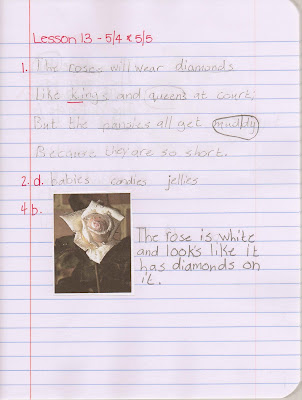 Lesson 13 - 5/4 & 5/5
1. The roses will wear diamonds
Like kings and queens at court;
But the pansies all get muddy
Because they are so short.
2. d. babies candies jellies
4. b.
The rose is white
and looks like it
has diamonds on
it.